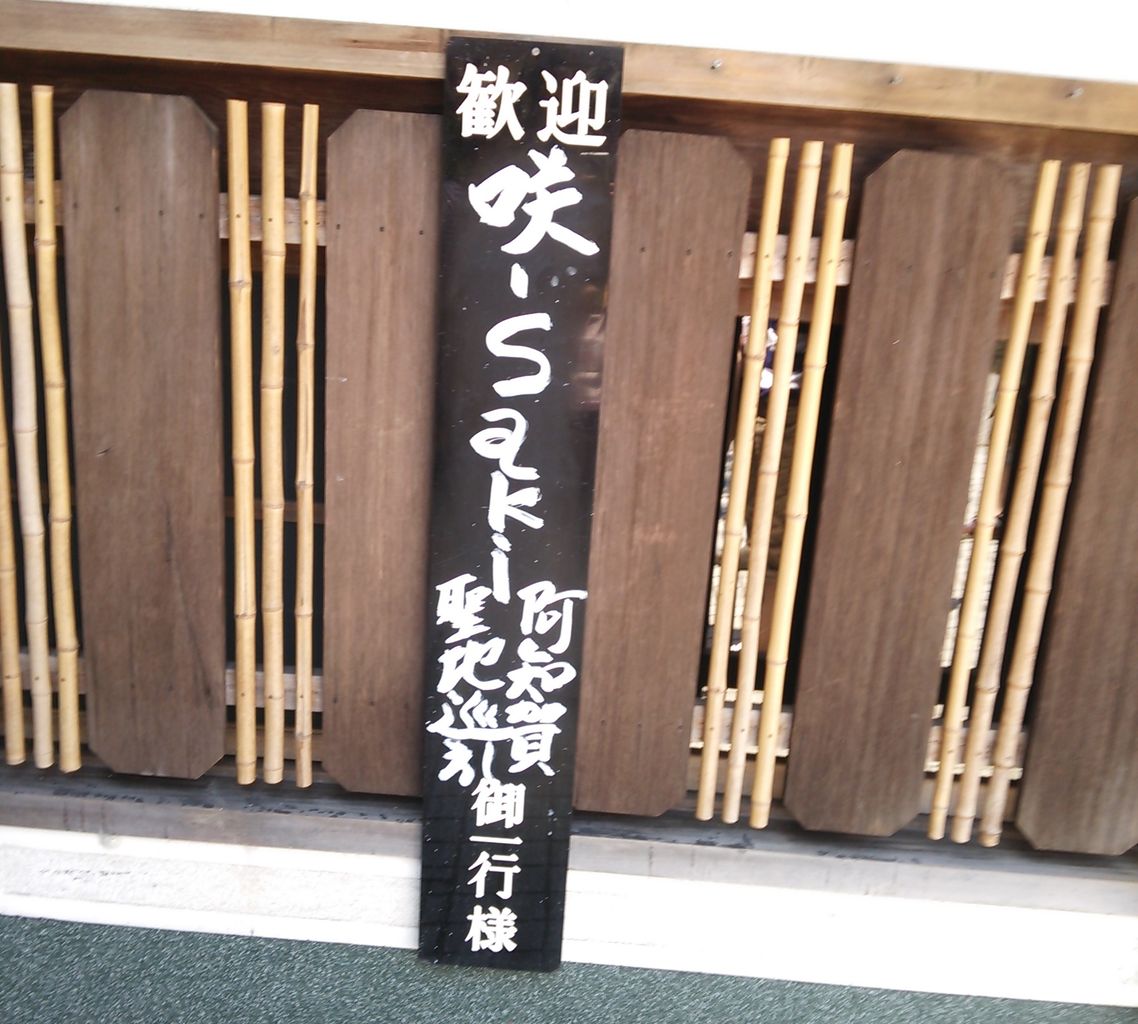 歓迎
咲-Saki
阿知賀
聖地巡礼
御一行様